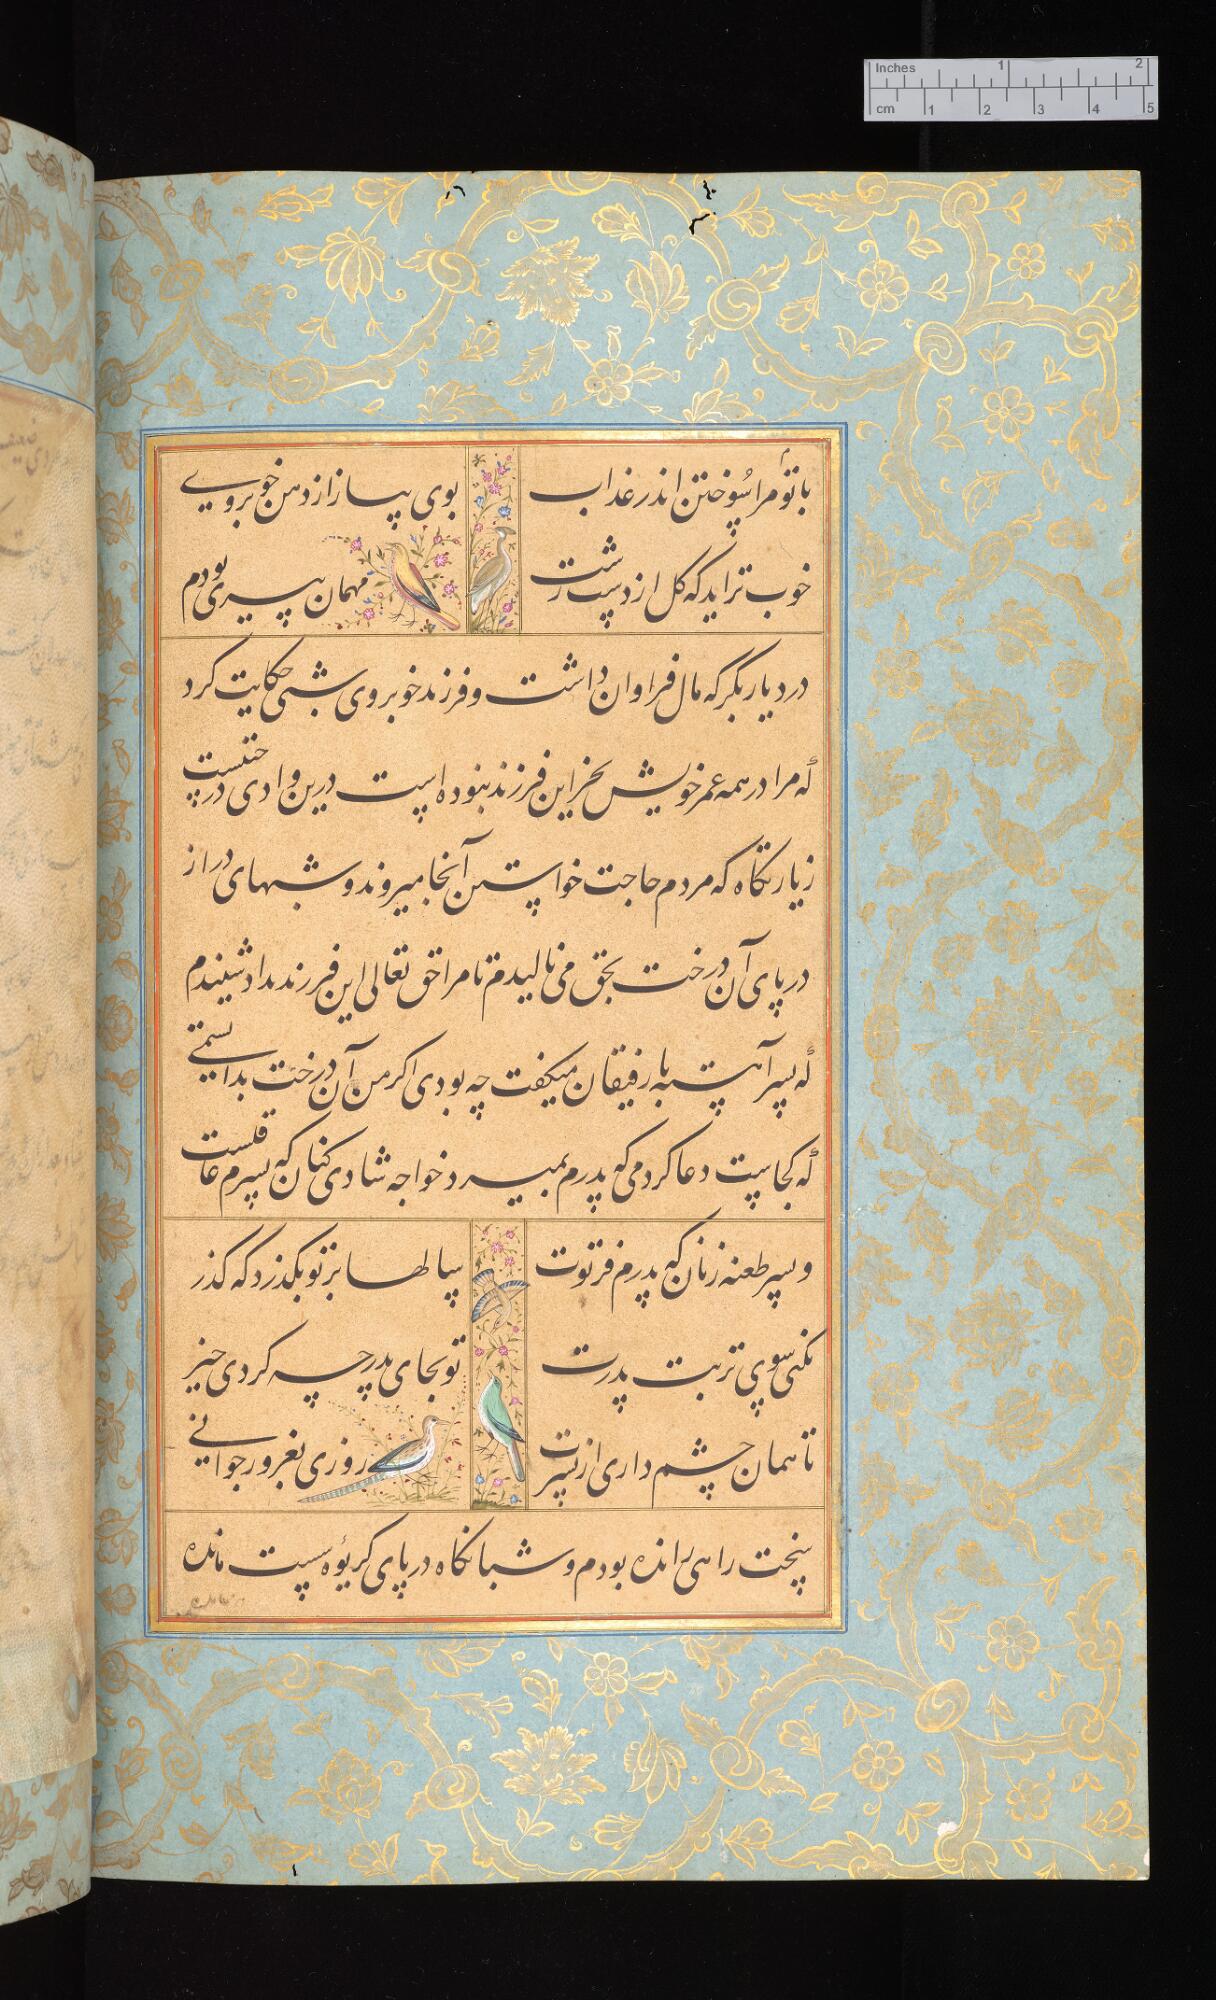 Inches 1 2
cm 1 2 3 4 5
با تو مرا سوختن اندر عذاب
بوی پیاز از دهن خوبروے
خوب تر آید که گل از دست زشت
مهمان پیری بودم
در دیار بکر که مال فراوان داشت و فرزند خوبروی شبی حکایت کرد
که مرا در همه عمر خویش بجز این فرزند نبوده است درین وادی درختیست
زیارتگاه که مردم حاجت خواستن آنجا میروند و شبهای دراز
در پای آن درخت بحق می نالیدم تا مرا حق تعالی این فرزند داد شنیدم
که پسر آهسته با رفیقان میگفت چه بودی اگر من آن درخت بدانستمی
که کجاست دعا کردمی که پدرم بمیرد خواجه شادی کنان که پسرم عاقلست
و پسر طعنه زنان که پدرم فرتوت
سالها بر تو بگذرد که گذر
نکنی سوی تربت پدرت
تو بجای پدر چه کردی خیر
تا همان چشم داری از پسرت
روزی بغرور جوانی
سخت راهی رانده بودم و شبانگاه در پای گریوه سست مانده